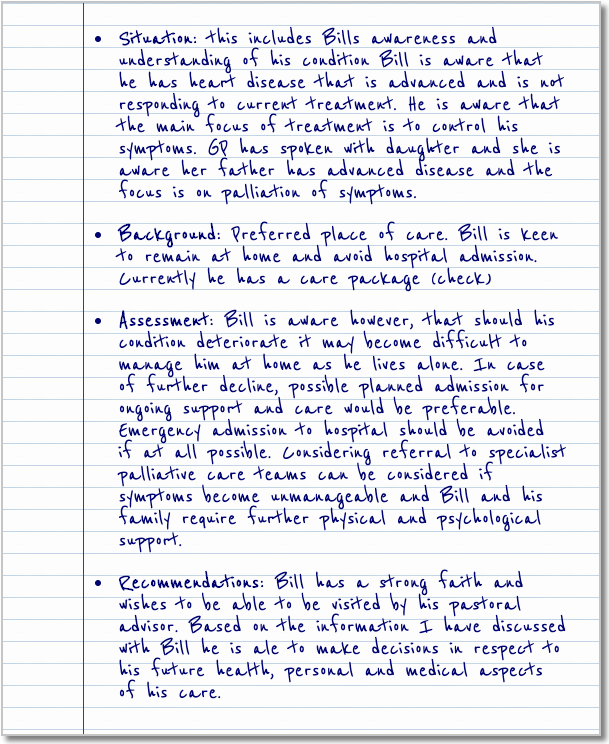 • Situation: this includes Bills awareness and
understanding of his condition Bill is aware that
he has heart disease that is advanced and is not
responding to current treatment. He is aware that
the main focus of treatment is to control his
symptoms. GP has spoken with daughter and she is
aware her father has advanced disease and the
focus is on palliation of symptoms.
• Background: Preferred place of care. Bill is keen
to remain at home and avoid hospital admission.
Currently he has a care package (check)
• Assessment: Bill is aware however, that should his
condition deteriorate it may become difficult to
manage him at home as he lives alone. In case
of further decline, possible planned admission for
ongoing support and care would be preferable.
Emergency admission to hospital should be avoided
if at all possible. Considering referral to specialist
palliative care teams can be considered if
symptoms become unmanageable and Bill and his
family require further physical and psychological
support.
• Recommendations: Bill has a strong faith and
wishes to be able to be visited by his pastoral
advisor. Based on the information I have discussed
with Bill he is ale to make decisions in respect to
his future health, personal and medical aspects
of his care.